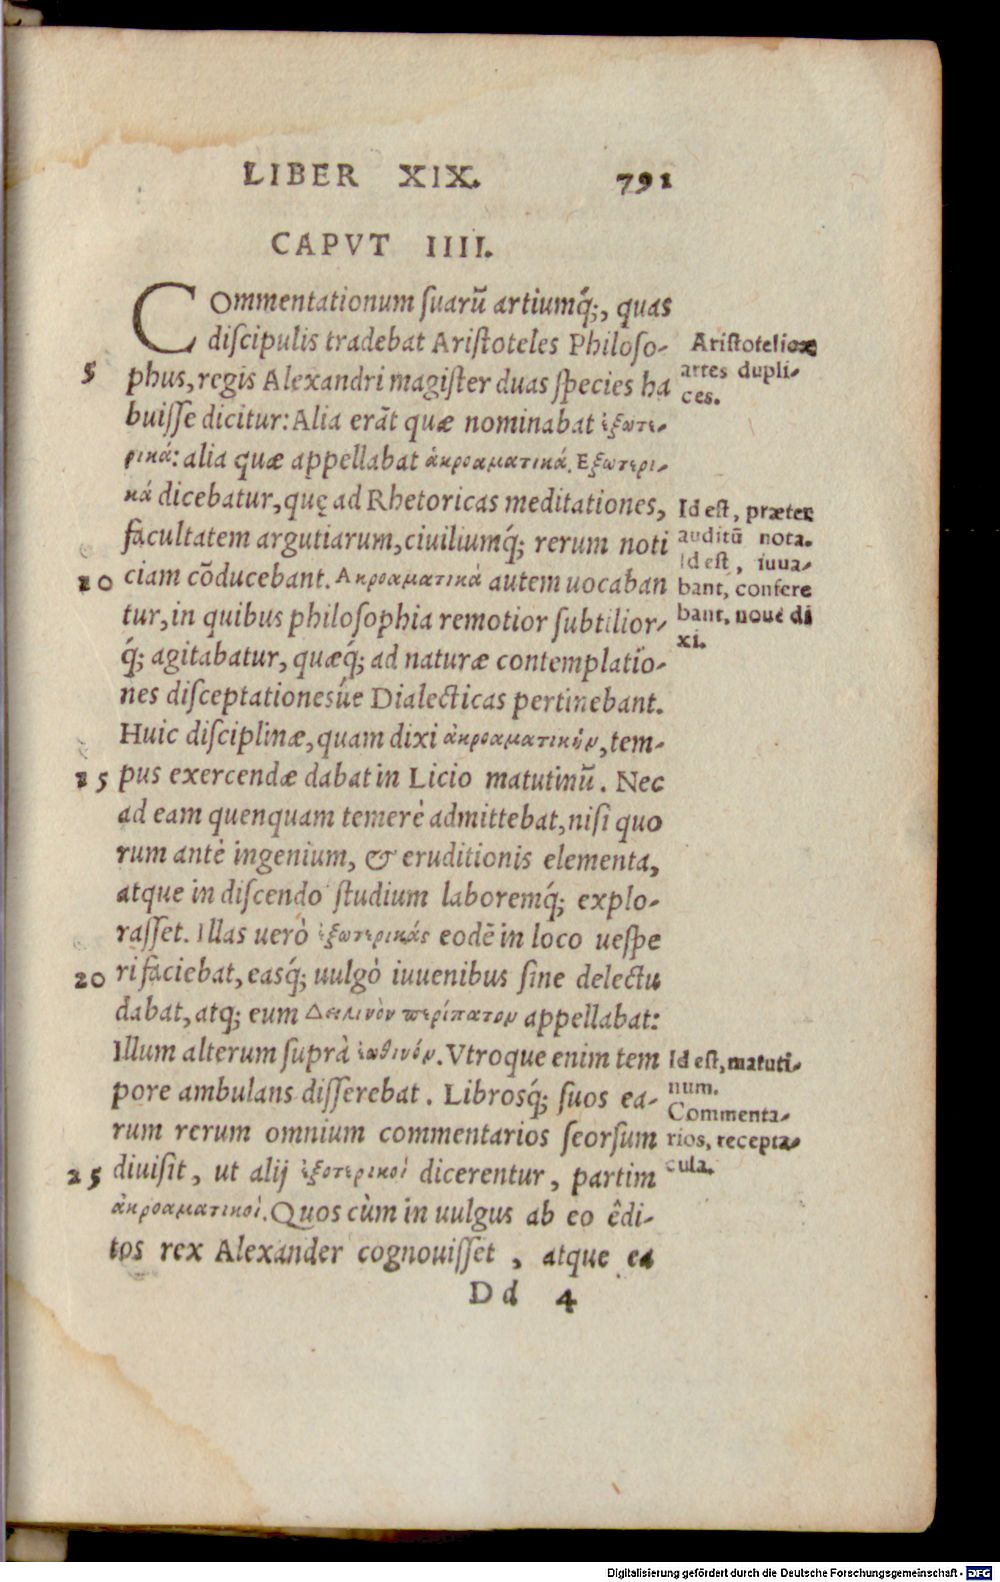 LIBER XIX. 791
CAPVT IIII.
COmmentationum suarū artiumq́;, quas
discipulis tradebat Aristoteles Philoso-
5 phus, regis Alexandri magister duas species ha
buisse dicitur: Alia erāt quæ nominabat ἐξωτε-
ρικά: alia quæ appellabat ἀκροαματικά. Εξωτερι-
κά dicebatur, quę ad Rhetoricas meditationes,
facultatem argutiarum, ciuiliumq́; rerum noti
10 ciam cōducebant. Ακροαματικά autem uocaban
tur, in quibus philosophia remotior subtilior-
q́; agitabatur, quæq́; ad naturæ contemplatio-
nes disceptationesúe Dialecticas pertinebant.
Huic disciplinæ, quam dixi ἀκροαματικὴν, tem-
15 pus exercendæ dabat in Licio matutinū. Nec
ad eam quenquam temerè admittebat, nisi quo
rum antè ingenium, & eruditionis elementa,
atque in discendo studium laboremq́; explo-
rasset. Illas uerò ἐξωτερικάς eodē in loco uespe
20 ri faciebat, easq́; uulgò iuuenibus sine delectu
dabat, atq; eum Δειλινὸν περίπατον appellabat:
Illum alterum suprà ἑωθινόν. Vtroque enim tem
pore ambulans disserebat. Librosq́; suos ea-
rum rerum omnium commentarios seorsum
25 diuisit, ut alij ἐξοτερικοὶ dicerentur, partim
ἀκροαματικοὶ. Quos cùm in uulgus ab eo êdi-
tos rex Alexander cognouisset, atque ea
Dd 4
Aristotelicæ
artes dupli-
ces.
Id est, præter
auditū nota.
Id est, iuua-
bant, confere
bant, nouè di
xi.
Id est, matuti-
num.
Commenta-
rios, recepta-
cula.
Digitalisierung gefördert durch die Deutsche Forschungsgemeinschaft - DFG